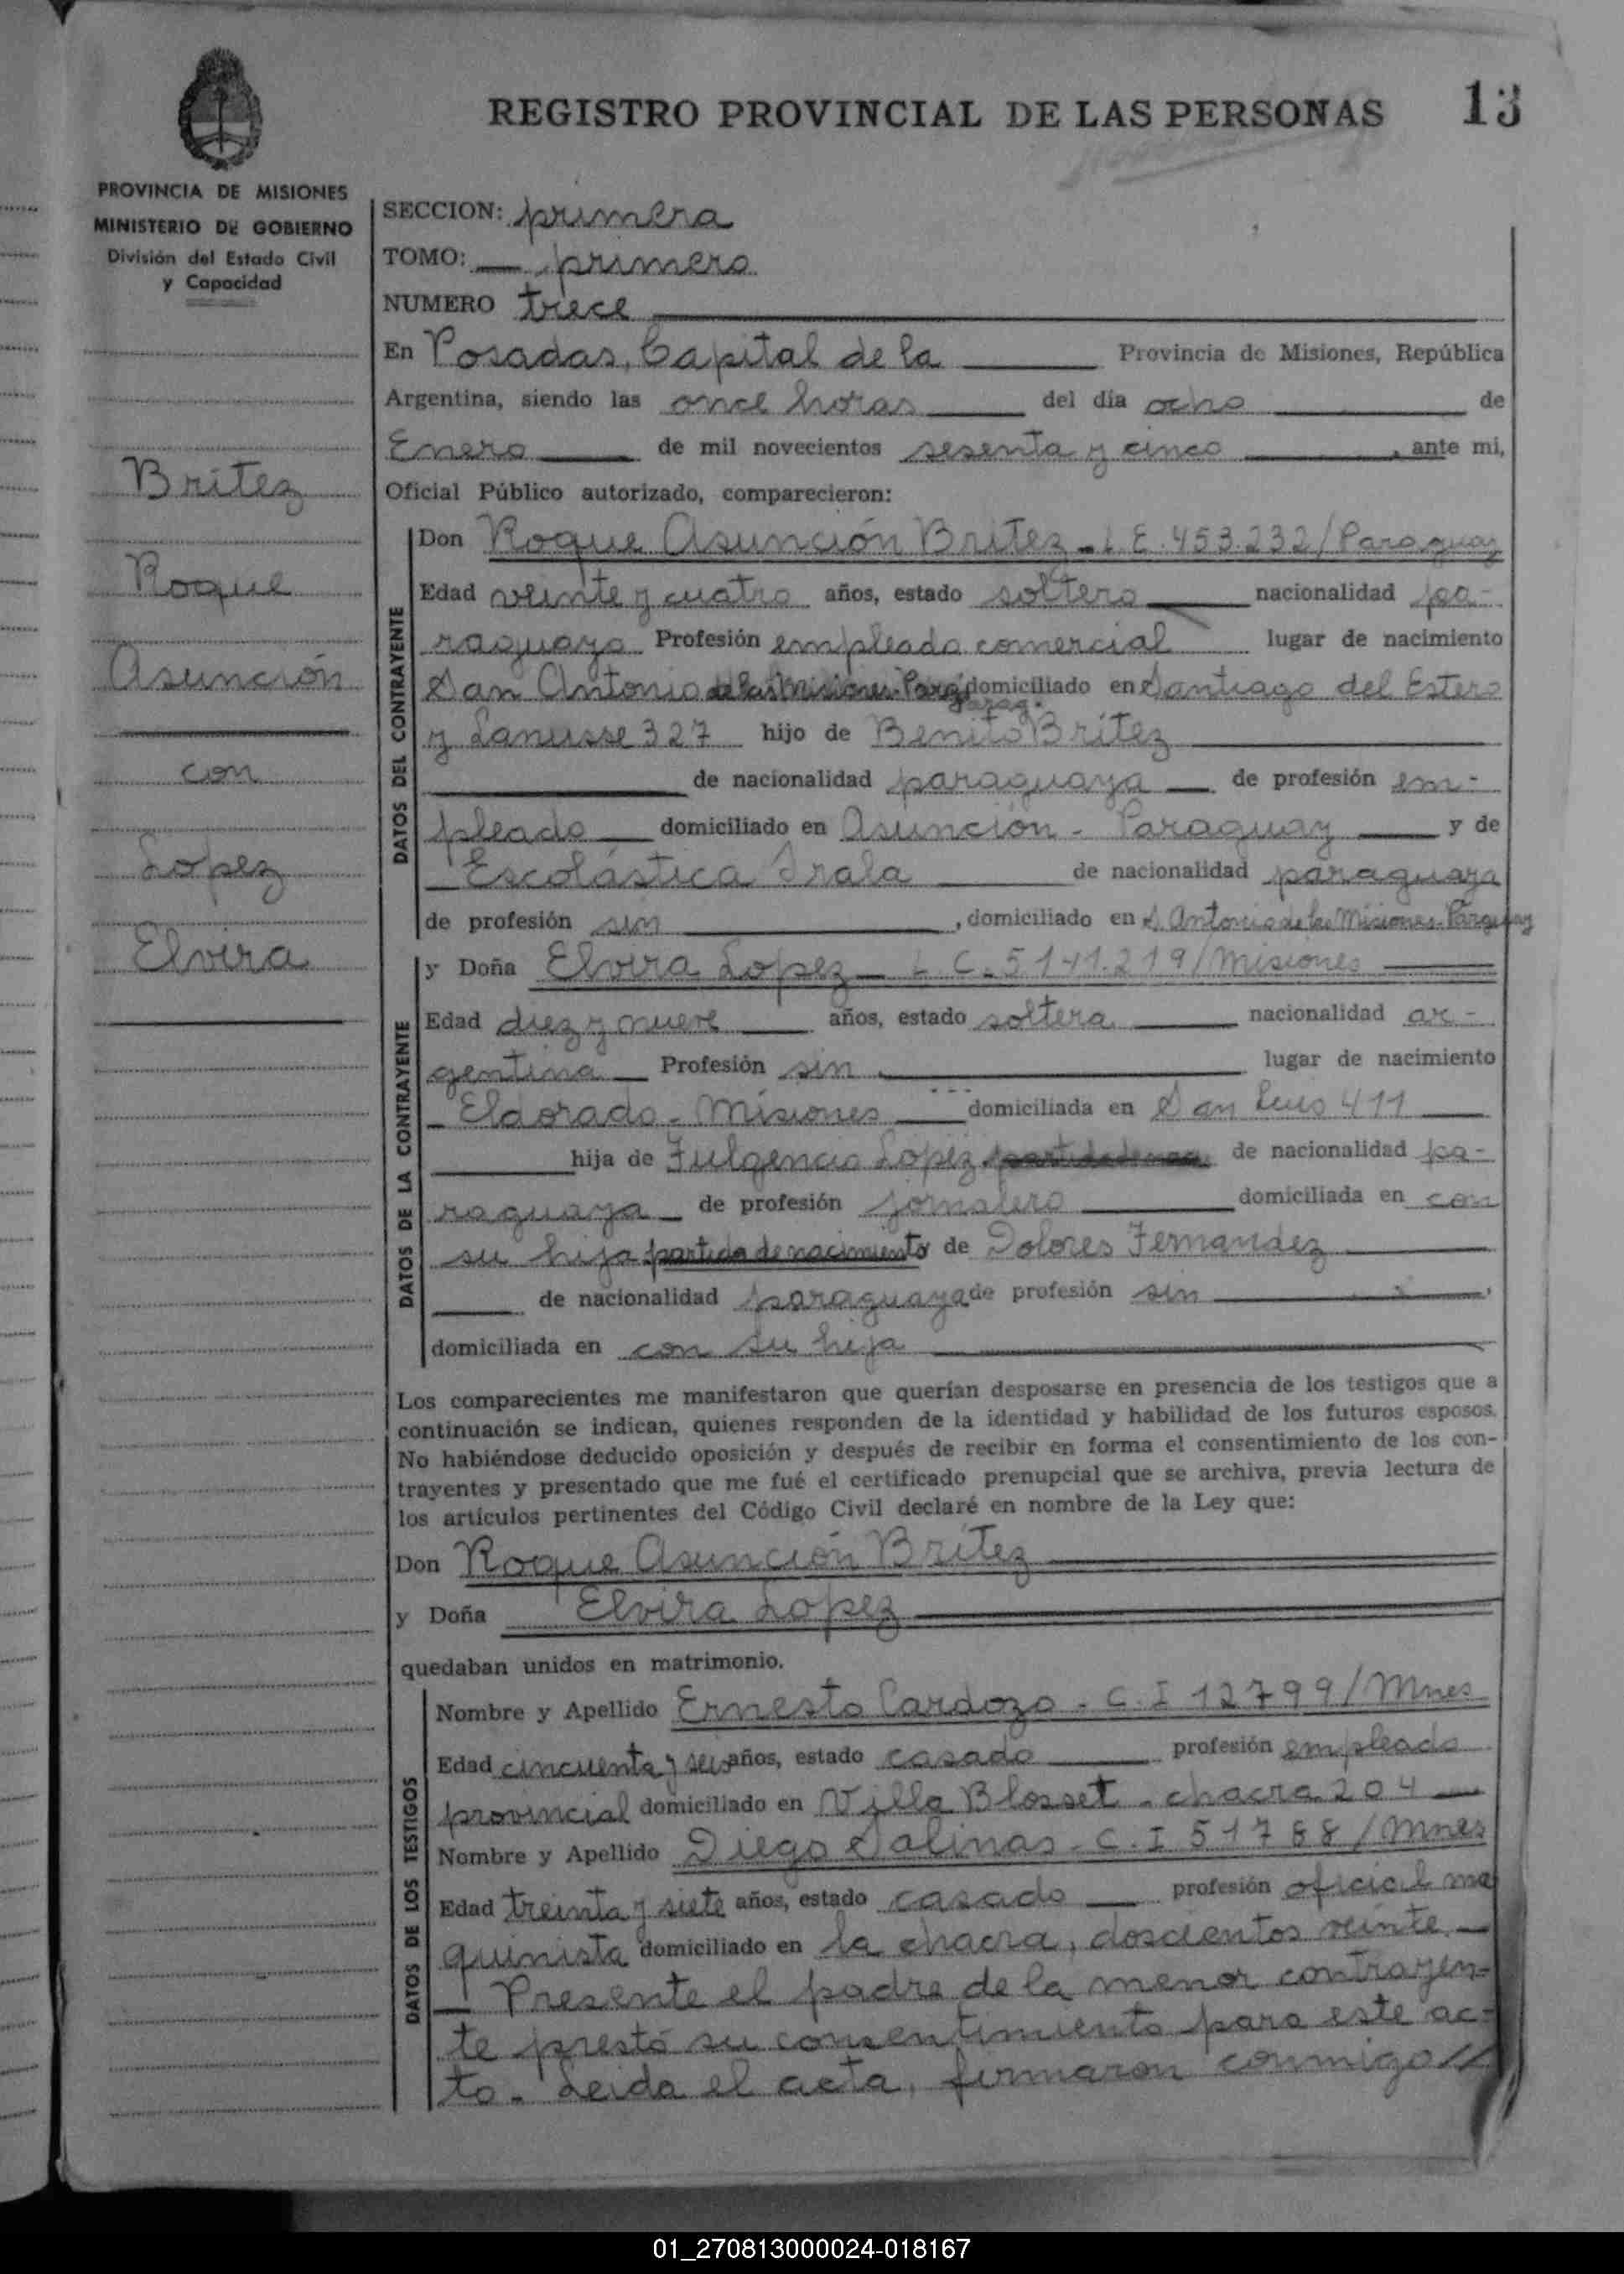 REGISTRO PROVINCIAL DE LAS PERSONAS 13
PROVINCIA DE MISIONES
MINISTERIO DE GOBIERNO
División del Estado Civil
y Capacidad
Britez
Roque
Asunción
con
Lopez
Elvira
SECCION: primera
TOMO: primero
NUMERO trece
En Posadas, Capital de la Provincia de Misiones, República
Argentina, siendo las once horas del día ocho de
Enero de mil novecientos sesenta y cinco, ante mi,
Oficial Público autorizado, comparecieron:
DATOS DEL CONTRAYENTE
Don Roque Asunción Britez - L.E. 453.232/Paraguay
Edad veinte y cuatro años, estado soltero nacionalidad pa-
raguaya Profesión empleado comercial lugar de nacimiento
San Antonio de las Misiones-Parag. domiciliado en Santiago del Estero
y Lanusse 327 hijo de Benito Brítez
de nacionalidad paraguaya de profesión em-
pleado domiciliado en Asunción - Paraguay y de
Escolástica Irala de nacionalidad paraguaya
de profesión sin, domiciliado en S. Antonio de las Misiones-Paraguay
DATOS DE LA CONTRAYENTE
y Doña Elvira Lopez - L.C. 5.141.219/Misiones
Edad diez y nueve años, estado soltera nacionalidad ar-
gentina Profesión sin lugar de nacimiento
Eldorado - Misiones domiciliada en San Luis 411
hija de Fulgencio Lopez de nacionalidad pa-
raguaya de profesión jornalero domiciliada en con
su hija partida de nacimiento y de Dolores Fernandez
de nacionalidad paraguaya de profesión sin
domiciliada en con su hija
Los comparecientes me manifestaron que querían desposarse en presencia de los testigos que a
continuación se indican, quienes responden de la identidad y habilidad de los futuros esposos.
No habiéndose deducido oposición y después de recibir en forma el consentimiento de los con-
trayentes y presentado que me fué el certificado prenupcial que se archiva, previa lectura de
los artículos pertinentes del Código Civil declaré en nombre de la Ley que:
Don Roque Asunción Brítez
y Doña Elvira Lopez
quedaban unidos en matrimonio.
DATOS DE LOS TESTIGOS
Nombre y Apellido Ernesto Cardozo - C.I 12799/Mnes
Edad cincuenta y seis años, estado casado profesión empleado
provincial domiciliado en Villa Blosset - chacra 204
Nombre y Apellido Diego Salinas - C.I 51788/Mnes
Edad treinta y siete años, estado casado profesión oficial ma
quinista domiciliado en la chacra, doscientos veinte
Presente el padre de la menor contrayen-
te prestó su consentimiento para este ac-
to. Leida el acta, firmaron conmigo//
01_270813000024-018167